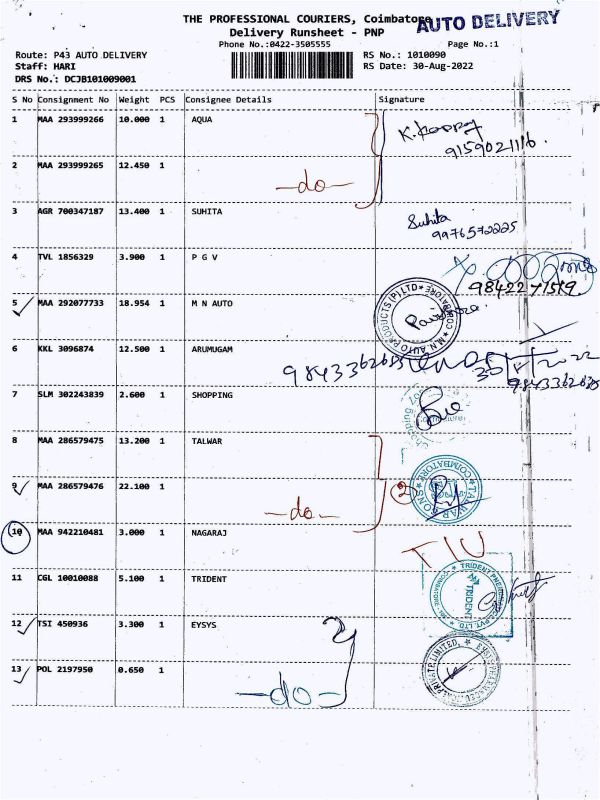 THE PROFESSIONAL COURIERS, Coimbatore
AUTO DELIVERY
Delivery Runsheet - PNP
Phone No.:0422-3505555
Page No.:1
Route: P43 AUTO DELIVERY
RS No.: 1010090
Staff: HARI
RS Date: 30-Aug-2022
DRS No.: DCJB101009001
S No Consignment No Weight PCS Consignee Details Signature
1 MAA 293999266 10.000 1 AQUA
9159021116.
2 MAA 293999265 12.450 1
-do-
3 AGR 700347187 13.400 1 SUHITA
Suhita
9976572225
4 TVL 1856329 3.900 1 P G V
9842271519.
5 MAA 292077733 18.954 1 M N AUTO
M.N. AUTO PRODUCTS (P) LTD COIMBATORE
6 KKL 3096874 12.500 1 ARUMUGAM
9843362635
9843362635
7 SLM 302243839 2.600 1 SHOPPING
Shopping
8 MAA 286579475 13.200 1 TALWAR
9 MAA 286579476 22.100 1
-do-
2
TALWAR SONS COIMBATORE
10 MAA 942210481 3.000 1 NAGARAJ
TIU
11 CGL 10010088 5.100 1 TRIDENT
TRIDENT
PVT. LTD.
12 TSI 450936 3.300 1 EYSYS
2
13 POL 2197950 0.650 1
-do-
PRIVATE LIMITED